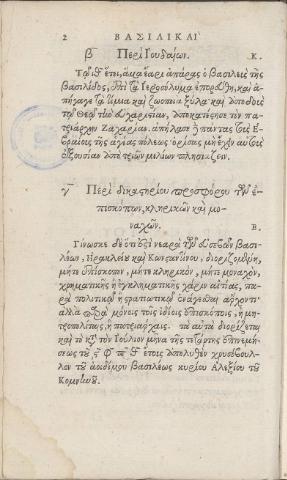 2 ΒΑΣΙΛΙΚΑΙ
β Περὶ Ἰουδαίων. Κ.
ἔτει, ἅμα ἔαρι ἀπάρας ὁ βασιλεὺς τῆς
βασιλίδος, ἐπὶ τὰ Ἱεροσόλυμα ἐπορεύθη, καὶ ἀ-
πήγαγε τὰ τίμια καὶ ζωοποιὰ ξύλα· καὶ ἀποδοὺς
τῷ Θεῷ τὴν εὐχαριστίαν, ἀποκατέστησε τὸν πα-
τριάρχην Ζαχαρίαν. ἀπήλασε πάντας τοὺς Ἑ-
βραίους τῆς ἁγίας πόλεως, ὁρίσας μὴ ἔχειν αὐτοὺς
ἐξουσίαν ἀπὸ τριῶν μιλίων πλησιάζειν.
γ Περὶ δικαστηρίου προσφόρου τῶν ἐ-
πισκόπων, κληρικῶν καὶ μο-
ναχῶν. Β.
Γίνωσκε δὲ ὅτι νεαρὰ τῶν εὐσεβῶν βασι-
λέων, Ἡρακλείου καὶ Κωνσταντίνου, διορίζομεν,
μήτε ἐπίσκοπον, μήτε κληρικὸν, μήτε μοναχὸν,
χρηματικῆς ἢ ἐγκληματικῆς χάριν αἰτίας, πα-
ρὰ πολιτικῷ ἢ στρατιωτικῷ ἐνάγεσθαι ἄρχοντι·
ἀλλὰ παρὰ μόνοις τοῖς ἰδίοις ἐπισκόποις, ἢ μη-
τροπολίταις, ἢ πατριάρχαις. τὰ αὐτὰ διορίζεται
καὶ τὸ τὸν Ἰούλιον μῆνα τῆς τετάρτης ἐπινεμή-
σεως τοῦ ἔτους ἀπολυθὲν χρυσόβουλ-
λον τοῦ ἀοιδίμου βασιλέως κυρίου Ἀλεξίου τοῦ
Κομνηνοῦ.